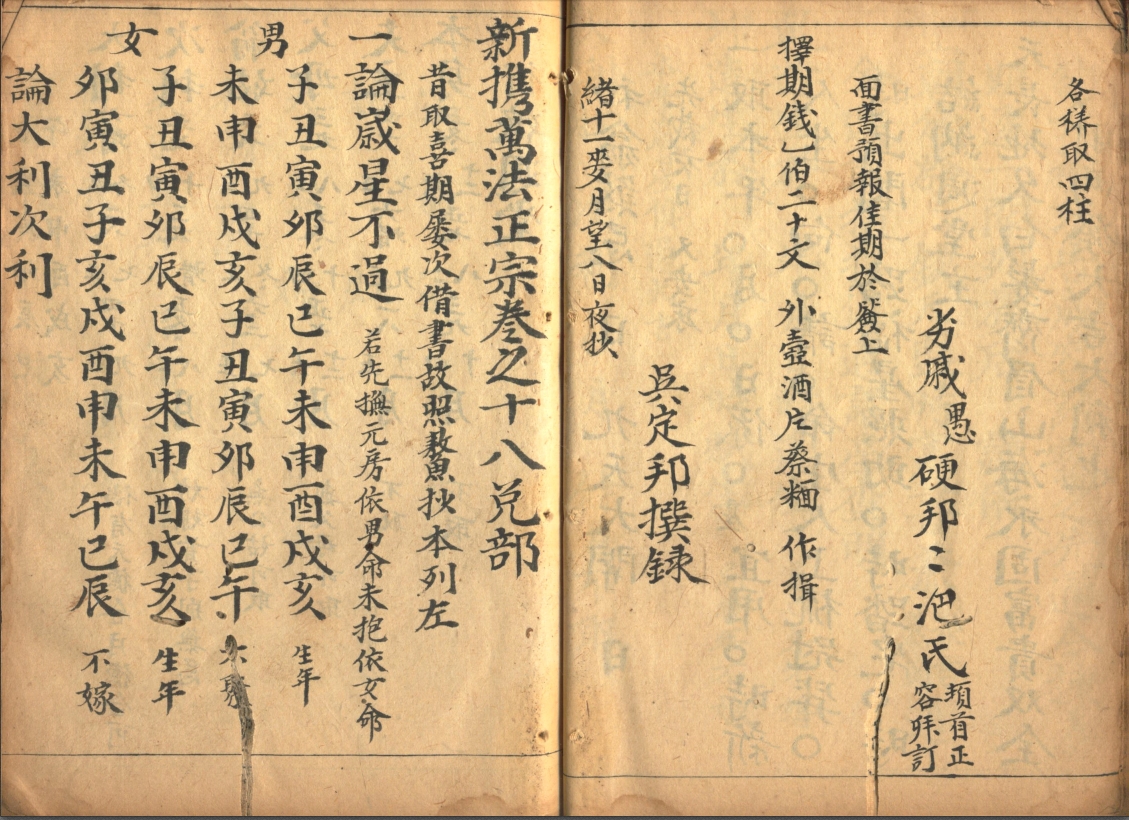 各樣取四柱
劣戚愚 硬邦二氾氏 頓首正容拜訂
面書預報佳期於簽上
擇期錢乚伯二十文 外壼酒片蔡緬 作揖
吳定邦撰録
緒十一麥月望八日夜抄
新携萬法正宗卷之十八兌部
昔取喜期屡次借書故照数魚抄本列左
一論歲星不過 若先撫元房依男命未抱依女命
男
子丑寅卯辰巳午未申酉戍亥 生年
未申酉戍亥子丑寅卯辰巳午 不娶
女
子丑寅卯辰巳午未申酉戍亥 生年
卯寅丑子亥戍酉申未午巳辰 不嫁
論大利次利